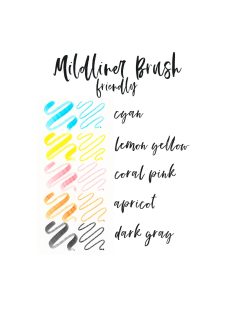 Mildliner Brush
friendly
cyan
lemon yellow
coral pink
apricot
dark gray